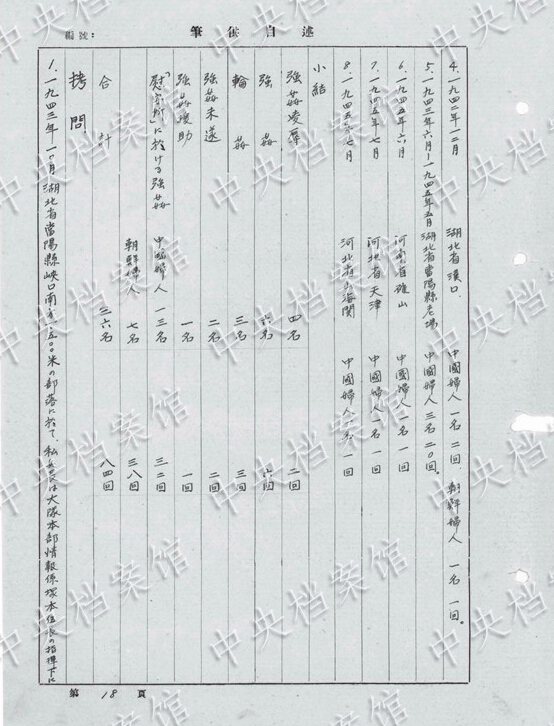 編號:
筆供自述
4. 一九四二年一二月 湖北省漢口 中國婦人 一名 二回 朝鮮婦人 一名 一回。
5. 一九四三年六月—一九四五年五月 湖北省當陽縣老場 中國婦人 三名 二〇回。
6. 一九四五年六月 河南省確山 中國婦人 一名 一回
7. 一九四五年七月 河北省天津 中國婦人 一名 一回
8. 一九四五年七月 河北省山海関 中國婦人 一名 一回
小結
強姦凌辱 四名 二回
強姦 六名 六回
輪姦 三名 三回
強姦未遂 二名 二回
強姦援助 一名 一回
「慰安所」に於ける強姦 中國婦人 一三名 三二回
朝鮮婦人 七名 三八回
合計 三六名 八四回
拷問
1. 一九四三年一〇月湖北省當陽縣峽口南方一五〇〇米の部落に於て、私は大隊本部情報係塚本伍長の指揮下に
第 18 頁
中央档案馆